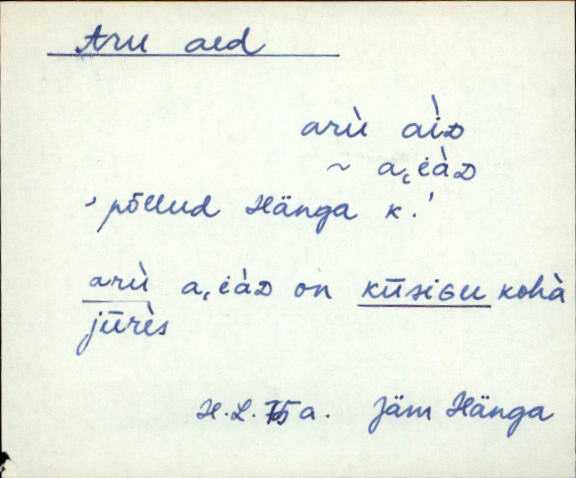 Aru aed
arù àiD
~ a,eàD
'põllud Hänga k.'
arù a,eàD on kūsiGu kohà
jūrès
H.L. 75 a. Jäm Hänga